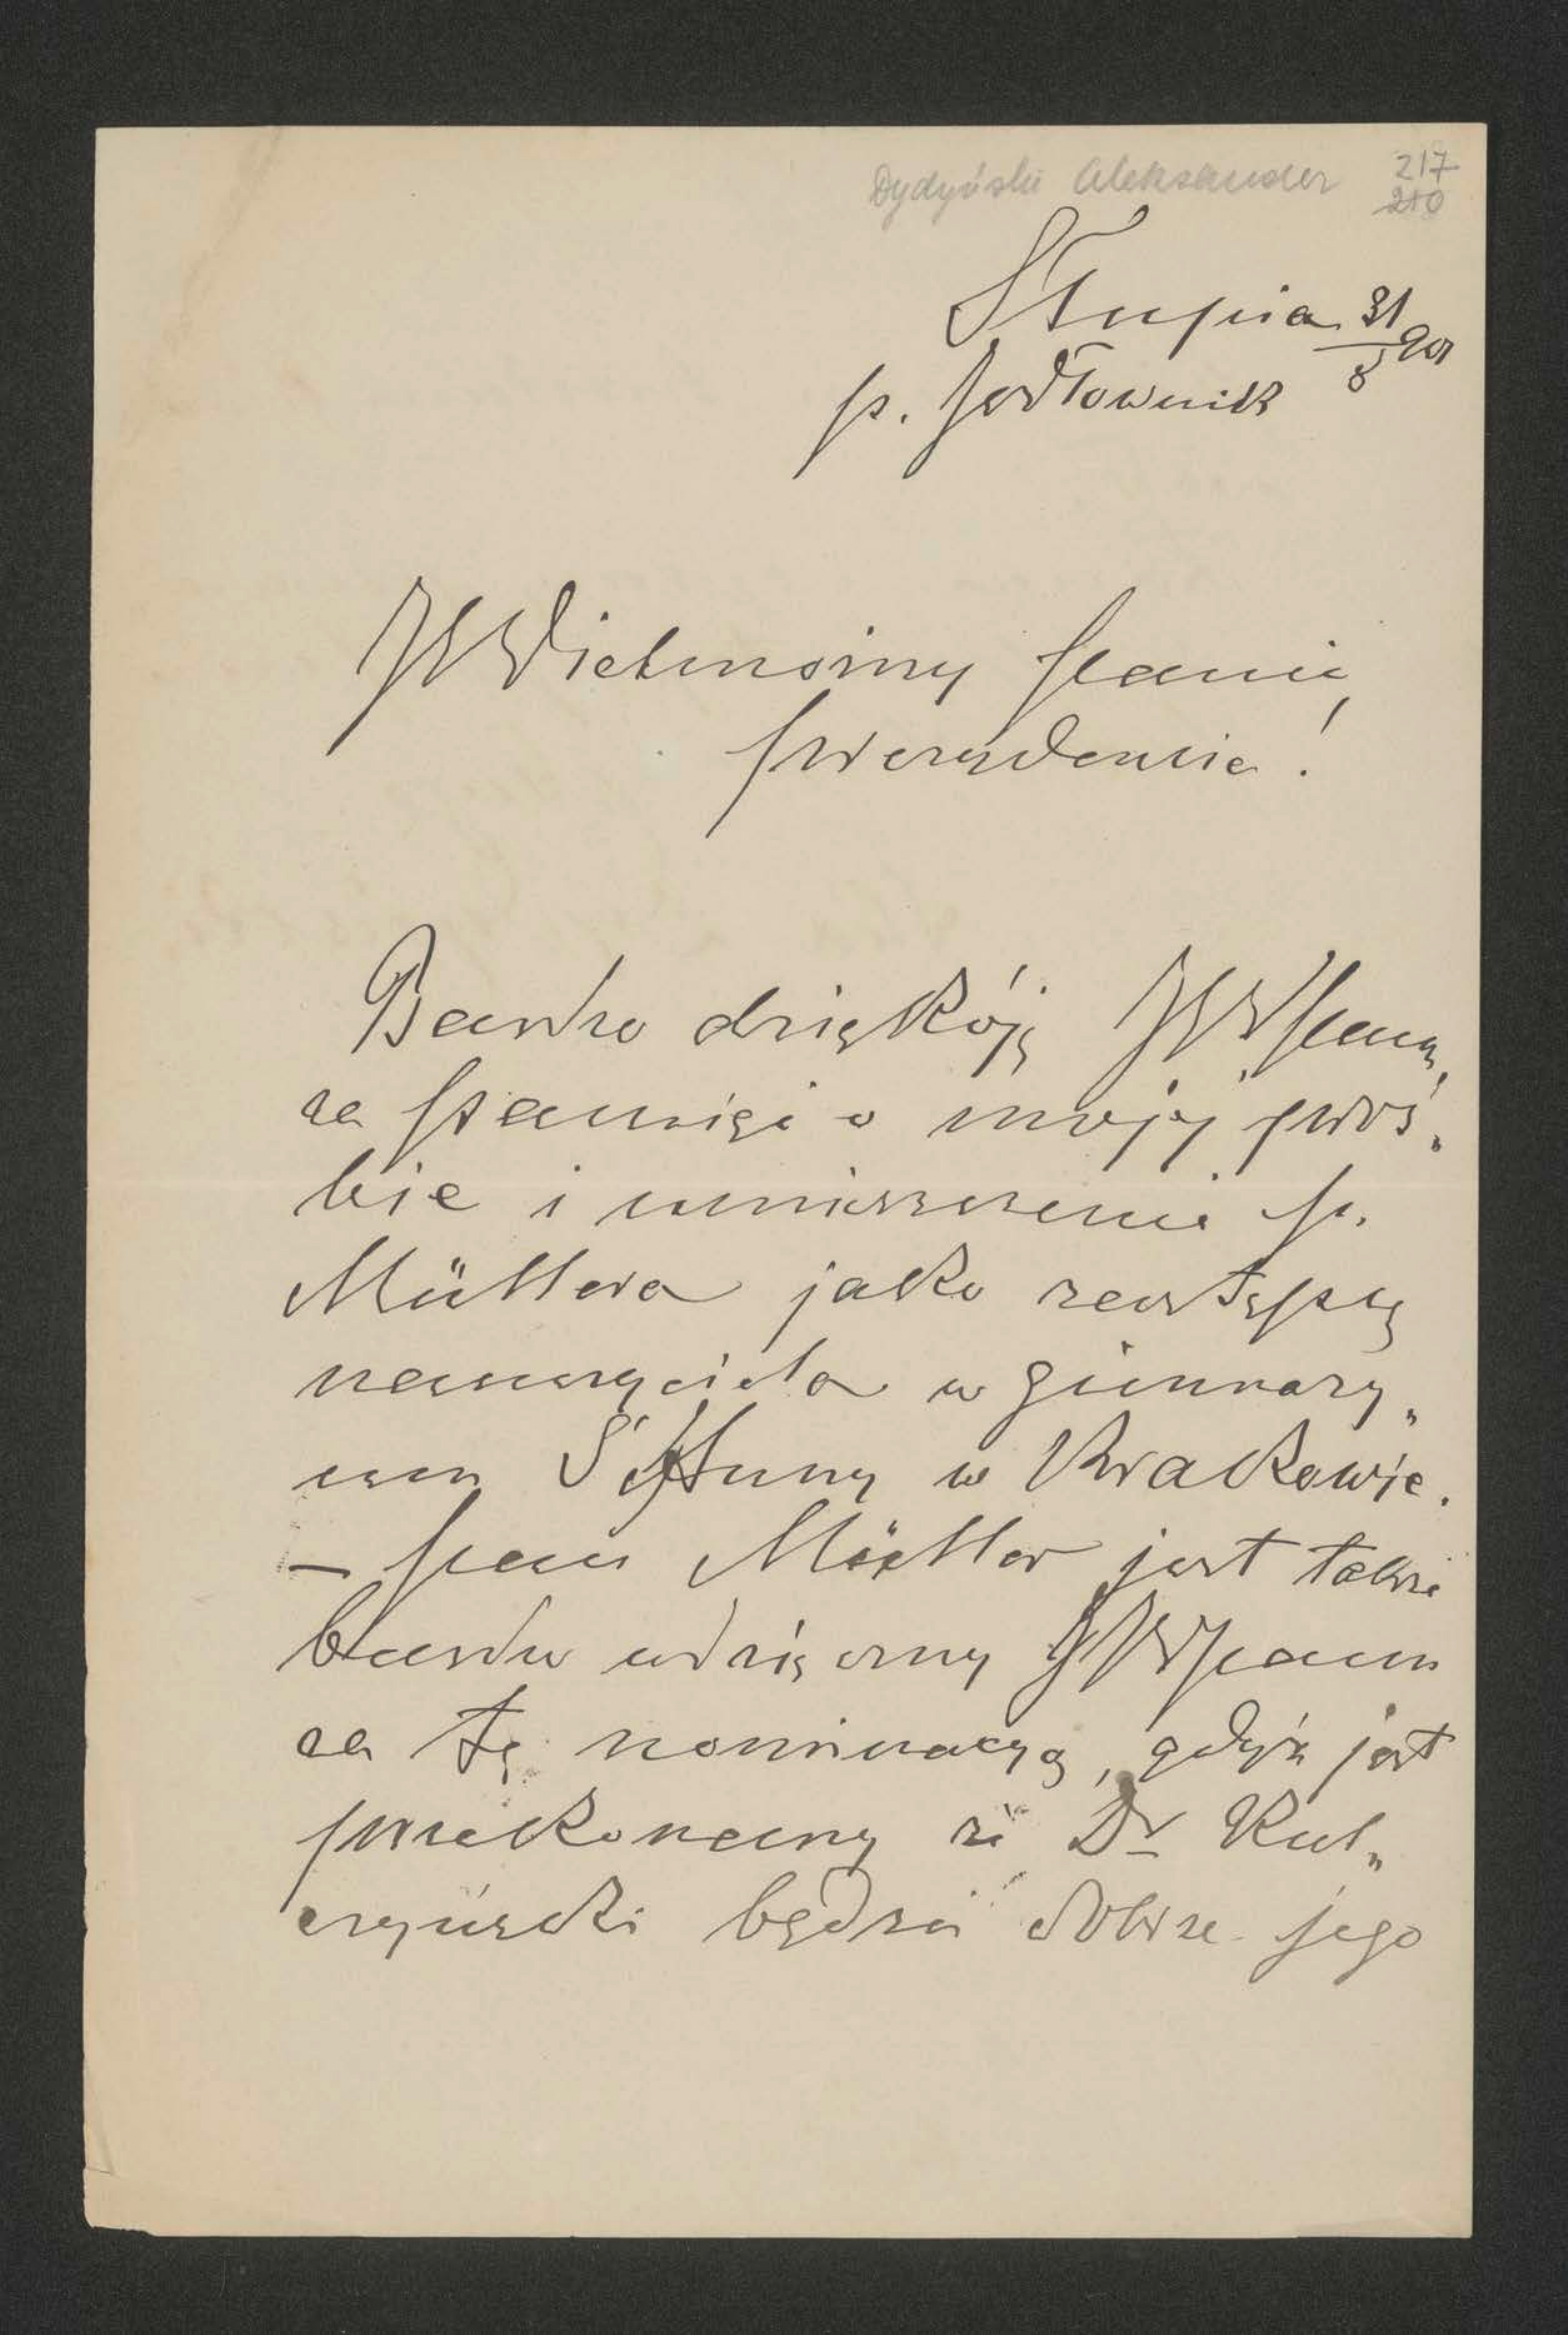 Dydyński Aleksander 217
210
Słupia 31/8 901
p. Jodłownik
JWielmożny Panie
Prezydencie!
Bardzo dziękóję JWPanu,
za pamięć o mojej proś„
bie i umieszczenie p.
Müllera jako zastępcę
nauczyciela w gimnazy„
um Sś Anny w Krakowie.
– Pan Müller jest także
bardzo wdzięczny JWPanu
za tę nominacyą, gdyż jest
przekonany że Dr Kul„
czyński będzie dobrze jego